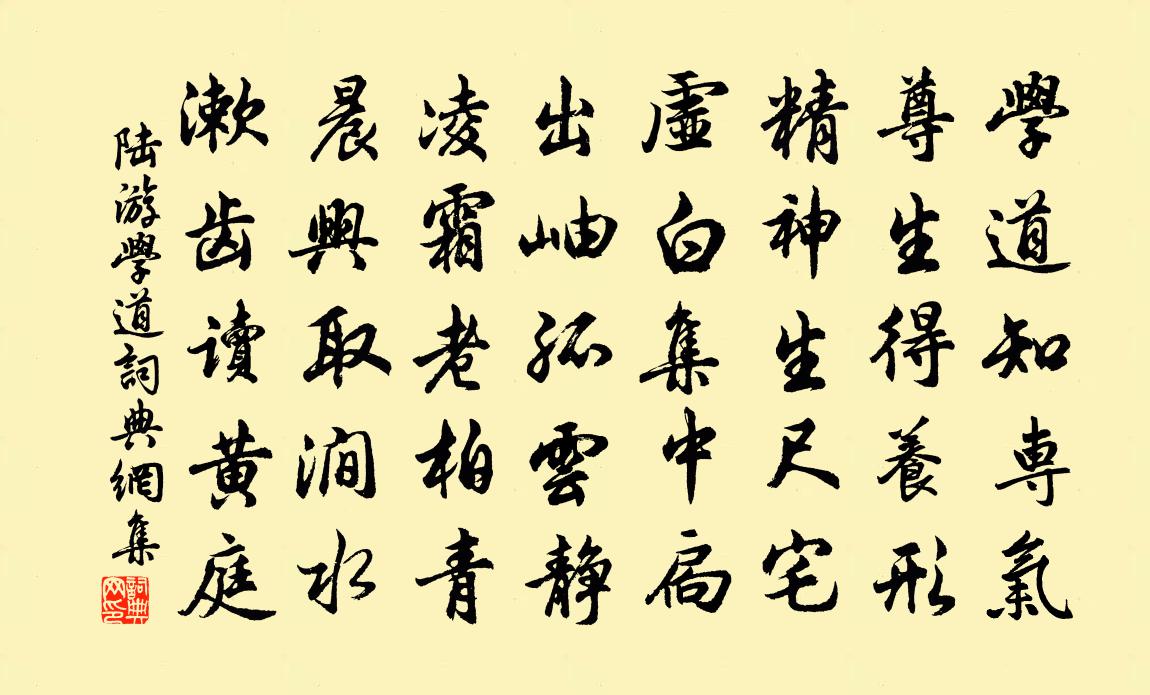 學道知専氣
尊生得養形
精神生尺宅
虚白集中扃
出岫孤雲静
凌霜老柏青
晨興取澗水
漱齿讀黄庭
陆游學道詞典網集
詞典网印